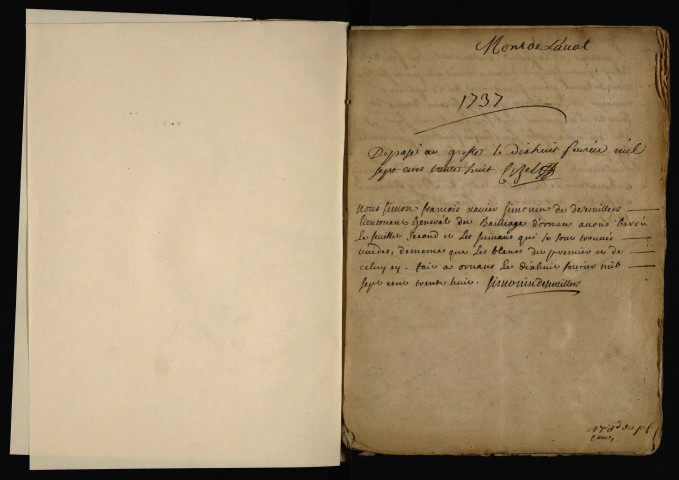 Mont de Laual
1737
Deposé au greffe le dixhuit feurier mil
sept cens trente huit
Nous simon françois xauier simonin de deseruillers
lieutenant General du Bailliage d'ornans auons barré
le feuillet second et les suiuans qui se sont trouués
uuides, de mesme que les blancs du premier et de
celuy cy. fait a ornans le dixhuit feurier mil
sept cent trente huit. simonin deseruillers